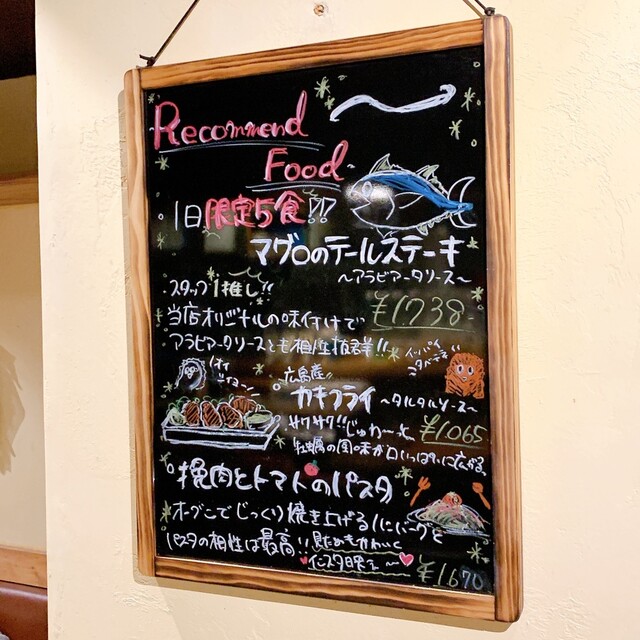 Recommend
Food
1日限定5食!!
マグロのテールステーキ
〜アラビアータソース〜
スタッフ1推し!!
¥1738-
当店オリジナルの味付けで
アラビアータソースとも相性抜群!!
広島産
カキフライ 〜タルタルソース〜
サクサク!!じゅわ〜っと
¥1065
牡蠣の風味が口いっぱいに広がる。
挽肉とトマトのパスタ
オーブンでじっくり焼き上げるハンバーグと
パスタの相性は最高!!見ためもかわいく
インスタ映え〜
¥1670